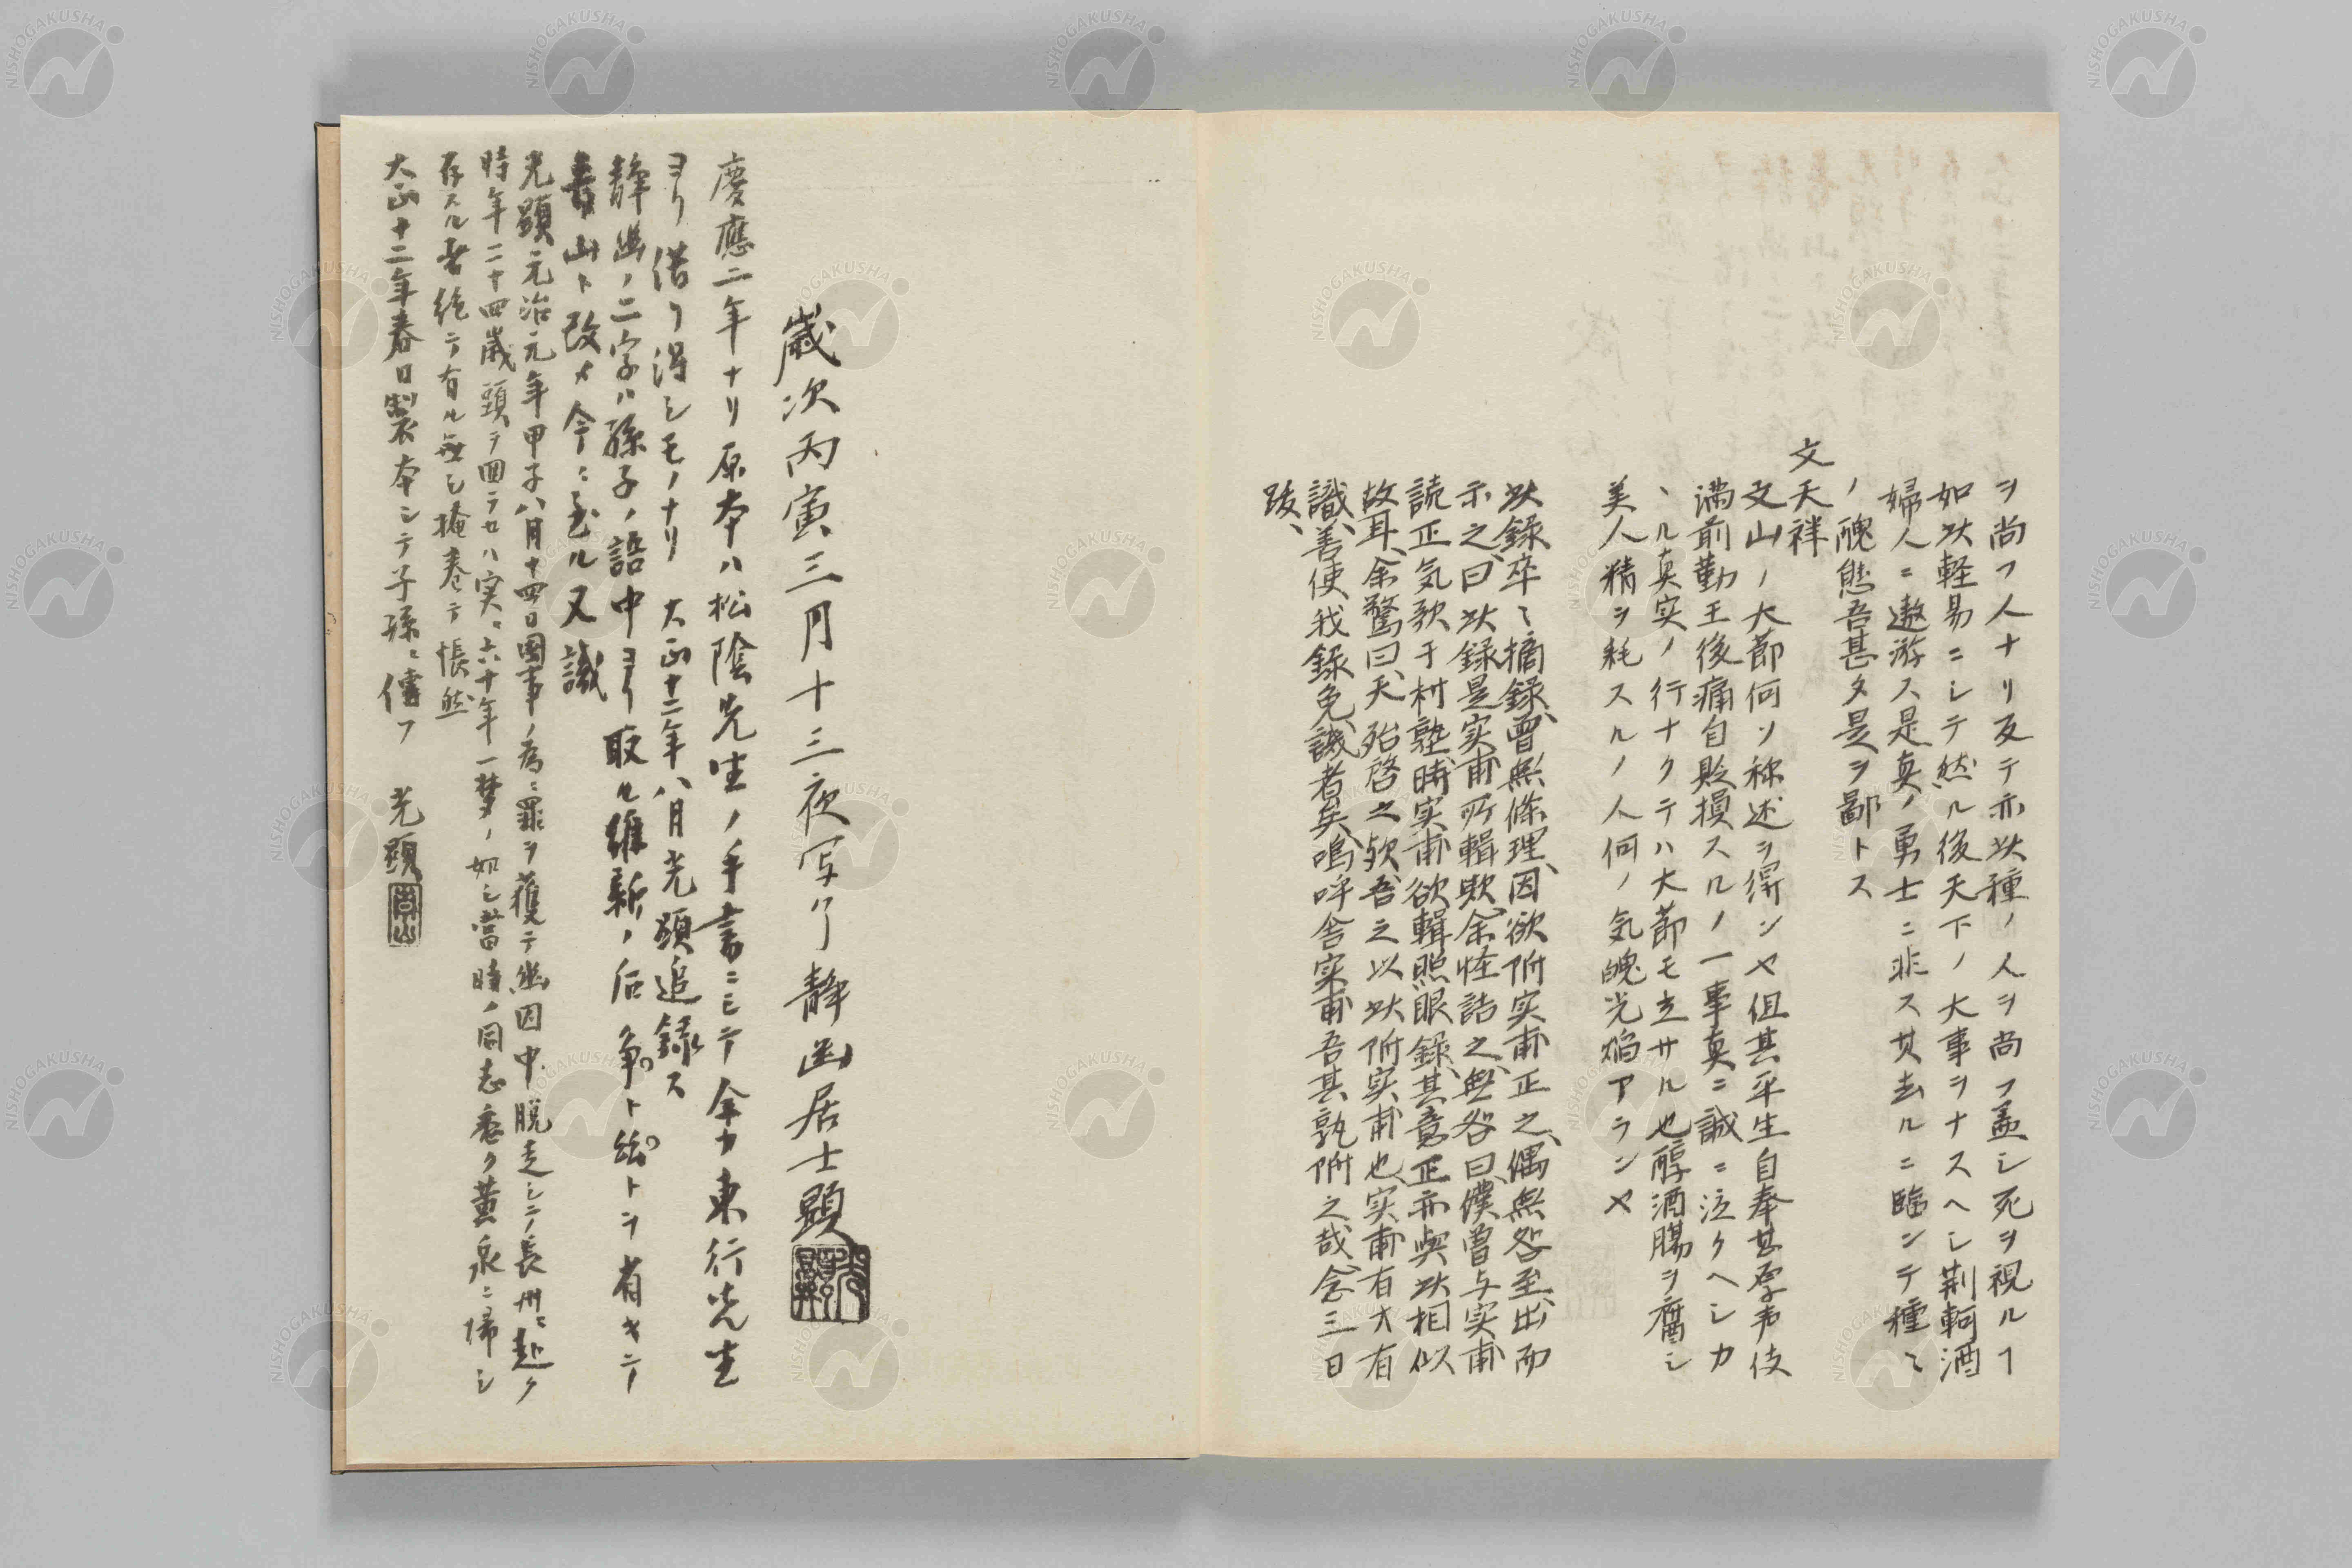 ヲ尚フ人ナリ反テ亦此種ノ人ヲ尚フ蓋シ死ヲ視ルヿ
如此軽易ニシテ然ル後天下ノ大事ヲナスヘシ荊軻酒
婦人ニ遨游ス是真ノ勇士ニ非ス其去ルニ臨ンテ種〻
ノ醜態吾甚タ是ヲ鄙トス
文天祥
文山ノ大節何ソ称述ヲ得ンヤ但其平生自奉甚厚声伎
満前勤王後痛自貶損スルノ一事真ニ誠ニ泣クヘシカ
ヽル真実ノ行ナクテハ大節モ立サル也醇酒腸ヲ腐シ
美人精ヲ耗スルノ人何ノ気魄光焔アランヤ
此録卒〻摘録、曽無條理、因欲附実甫正之、偶無咎至、出而
示之、曰此録是実甫所輯歟、余怪詰之、無咎曰、僕曽与実甫
読正気歌于村塾、時実甫欲輯照眼録、其意正亦与此相似
故耳、余驚曰、天殆啓之歟、吾之以此附実甫也、実甫有大有
識、善使我録免譏者矣、嗚呼舎実甫吾其孰附之哉、念三日
跋、
歳次丙寅三月十三夜写了 静幽居士顕
慶應二年ナリ原本ハ松陰先生ノ手書ニシテ余カ東行先生
ヨリ借リ得シモノナリ 大正十二年八月光顕追録ス
静幽ノ二字ハ孫子ノ語中ヨリ取ル維新ノ后争ト幽トヲ省キテ
青山ト改メ今ニ至ル又識
光顕元治元年甲子八月十四日国事ノ為ニ罪ヲ獲テ幽囚中脱走シテ長州ニ赴ク
時年二十四歳頭ヲ回ラセハ実ニ六十年一夢ノ如シ當時ノ同志悉ク黄泉ニ帰シ
存スル者絶テ有ル無シ掩巻テ悵然
大正十二年春日製本シテ子孫ニ傳フ 光顕
青山
NISHOGAKUSHA